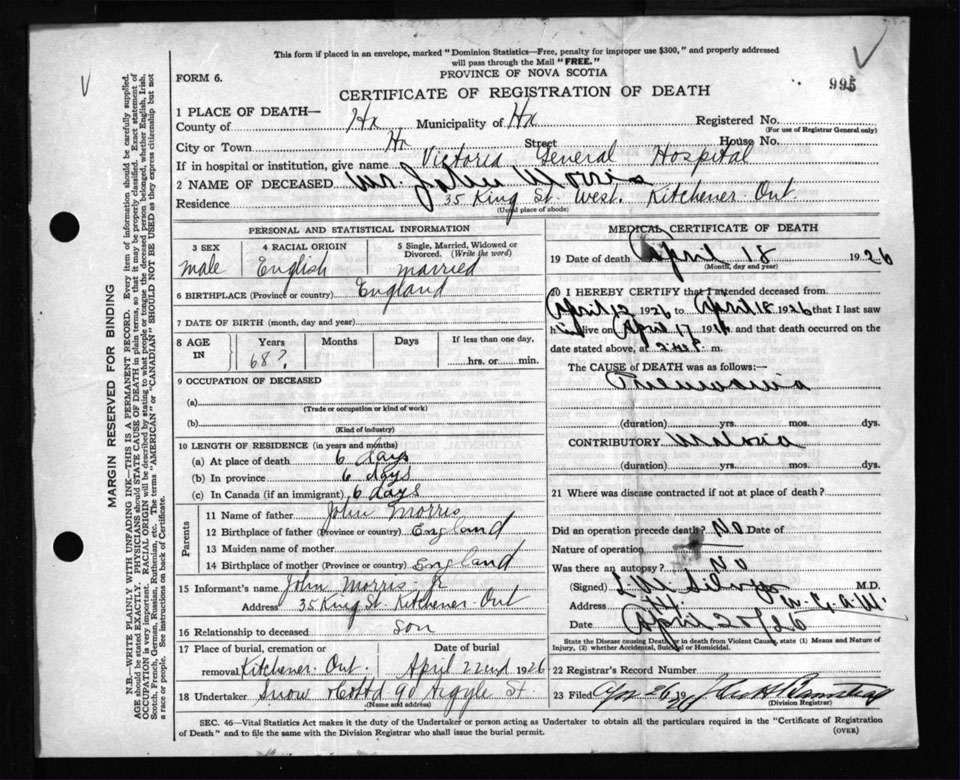 This form if placed in an envelope, marked "Dominion Statistics—Free, penalty for improper use $300," and properly addressed
will pass through the Mail "FREE."
FORM 6.
PROVINCE OF NOVA SCOTIA
995
CERTIFICATE OF REGISTRATION OF DEATH
1 PLACE OF DEATH—
County of Hx Municipality of Hx Registered No.
(For use of Registrar General only)
City or Town Hx Street House No.
If in hospital or institution, give name Victoria General Hospital
2 NAME OF DECEASED Mr. John Morris
Residence 35 King St. West. Kitchener Ont.
(Usual place of abode)
PERSONAL AND STATISTICAL INFORMATION
3 SEX 4 RACIAL ORIGIN 5 Single, Married, Widowed or
Divorced. (Write the word)
male English married
6 BIRTHPLACE (Province or country) England
7 DATE OF BIRTH (month, day and year)
8 AGE IN Years Months Days If less than one day,
68? hrs. or min.
9 OCCUPATION OF DECEASED
(a)
(Trade or occupation or kind of work)
(b)
(Kind of industry)
10 LENGTH OF RESIDENCE (in years and months)
(a) At place of death 6 days
(b) In province 6 days
(c) In Canada (if an immigrant) 6 days
Parents
11 Name of father John Morris
12 Birthplace of father (Province or country) England
13 Maiden name of mother
14 Birthplace of mother (Province or country) England
15 Informant's name John Morris Jr
Address 35 King St. Kitchener Ont
16 Relationship to deceased son
17 Place of burial, cremation or
removal Kitchener. Ont. April 22nd 1926
18 Undertaker Snow & Co Ltd 90 Argyle St.
(Name and address)
MEDICAL CERTIFICATE OF DEATH
19 Date of death April 18 1926
(Month, day and year)
20 I HEREBY CERTIFY that I attended deceased from
April 12 1926 to April 18 1926 that I last saw
h alive on April 17 1926 and that death occurred on
date stated above, at m.
The CAUSE of DEATH was as follows:—
Pneumonia
(duration) yrs. mos. dys.
CONTRIBUTORY Malaria
(duration) yrs. mos. dys.
21 Where was disease contracted if not at place of death?
Did an operation precede death? No Date of
Nature of operation
Was there an autopsy? No
(Signed) M.D.
Address
Date April 20/26
State the Disease causing Death, or in death from Violent Causes, state (1) Means and Nature of
Injury, (2) whether Accidental, Suicidal or Homicidal.
22 Registrar's Record Number
23 Filed Apr 26 1926
(Division Registrar)
SEC. 46—Vital Statistics Act makes it the duty of the Undertaker or person acting as Undertaker to obtain all the particulars required in the "Certificate of Registration
of Death" and to file the same with the Division Registrar who shall issue the burial permit.
(OVER)
MARGIN RESERVED FOR BINDING
N.B.—WRITE PLAINLY WITH UNFADING INK—THIS IS A PERMANENT RECORD. Every item of information should be carefully supplied.
AGE should be stated EXACTLY. PHYSICIANS should STATE CAUSE OF DEATH in plain terms, so that it may be properly classified. Exact statement of
OCCUPATION is very important. RACIAL ORIGIN will be described by stating to what people or tongue the deceased person belonged, whether English, Irish,
Scotch, French, German, Russian, Ruthenian, etc. The terms "AMERICAN" or "CANADIAN" SHOULD NOT BE USED as they express citizenship but not
a race or people. See instructions on back of Certificate.